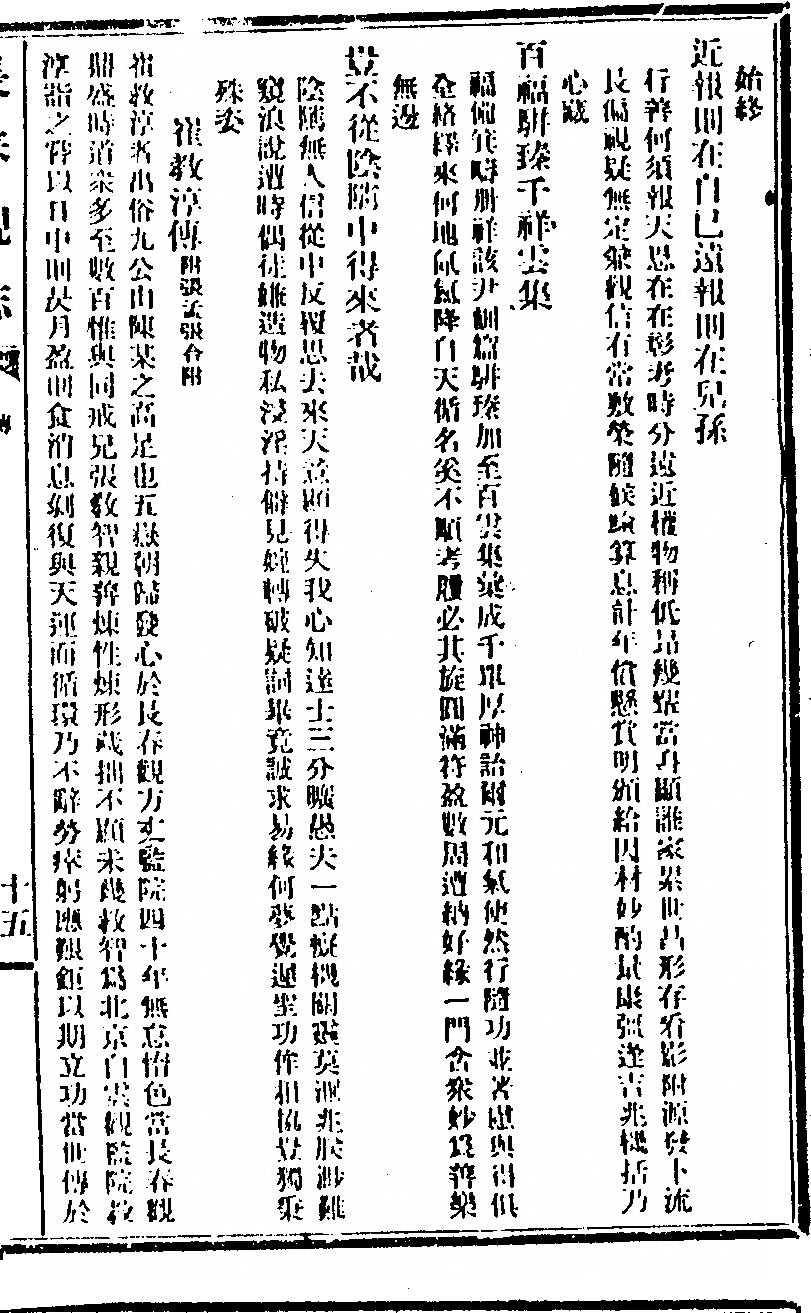 始終
近報則在自己遠報則在兒孫
行善何須報天恩在在彰考時分遠近權物稱低昻幾輩當身顯誰家累世昌形存看影附源發卜流
長偏視疑無定縱觀信有常數榮隨候算息計年償懸賞明頒給因材妙酌量康强逢吉兆機括乃
心藏
百福駢臻千祥雲集
福備箕疇册祥該尹訓篇駢臻加至百雲集葉成千單厚神詒爾元和氣使然行隨功並著虛與得俱
全絡繹來何地氤氳降自天循名奚不顧考履必其旋圓滿符盈數周遭納好緣一門含衆妙爲善樂
無邊
豈不從陰隲中得來者哉
陰隲無人信從中反覆思去來天豈顯得失我心知達士三分曠愚夫一點癡機關窺莫測兆朕涉難
窺浪說遭時偶徒嫌造物私浸淫持僻見婉轉破疑詞畢竟誠求易緣何夢覺遲聖功作相協豈獨秉
殊姿
崔教淳傳 附張孟張合附
崔教淳者出俗九公山陳某之高足也五嶽朝歸發心於長春觀方丈監院四十年無怠惰色當長春觀
鼎盛時道衆多至數百惟與同戒兄張教智親善煉性煉形藏拙不顯未幾教智爲北京白雲觀監院教
淳詣之答以日中則昃月盈則食消息剝復與天運而循環乃不辭勞瘁躬膺艱鉅以期立功當世傳於
十五